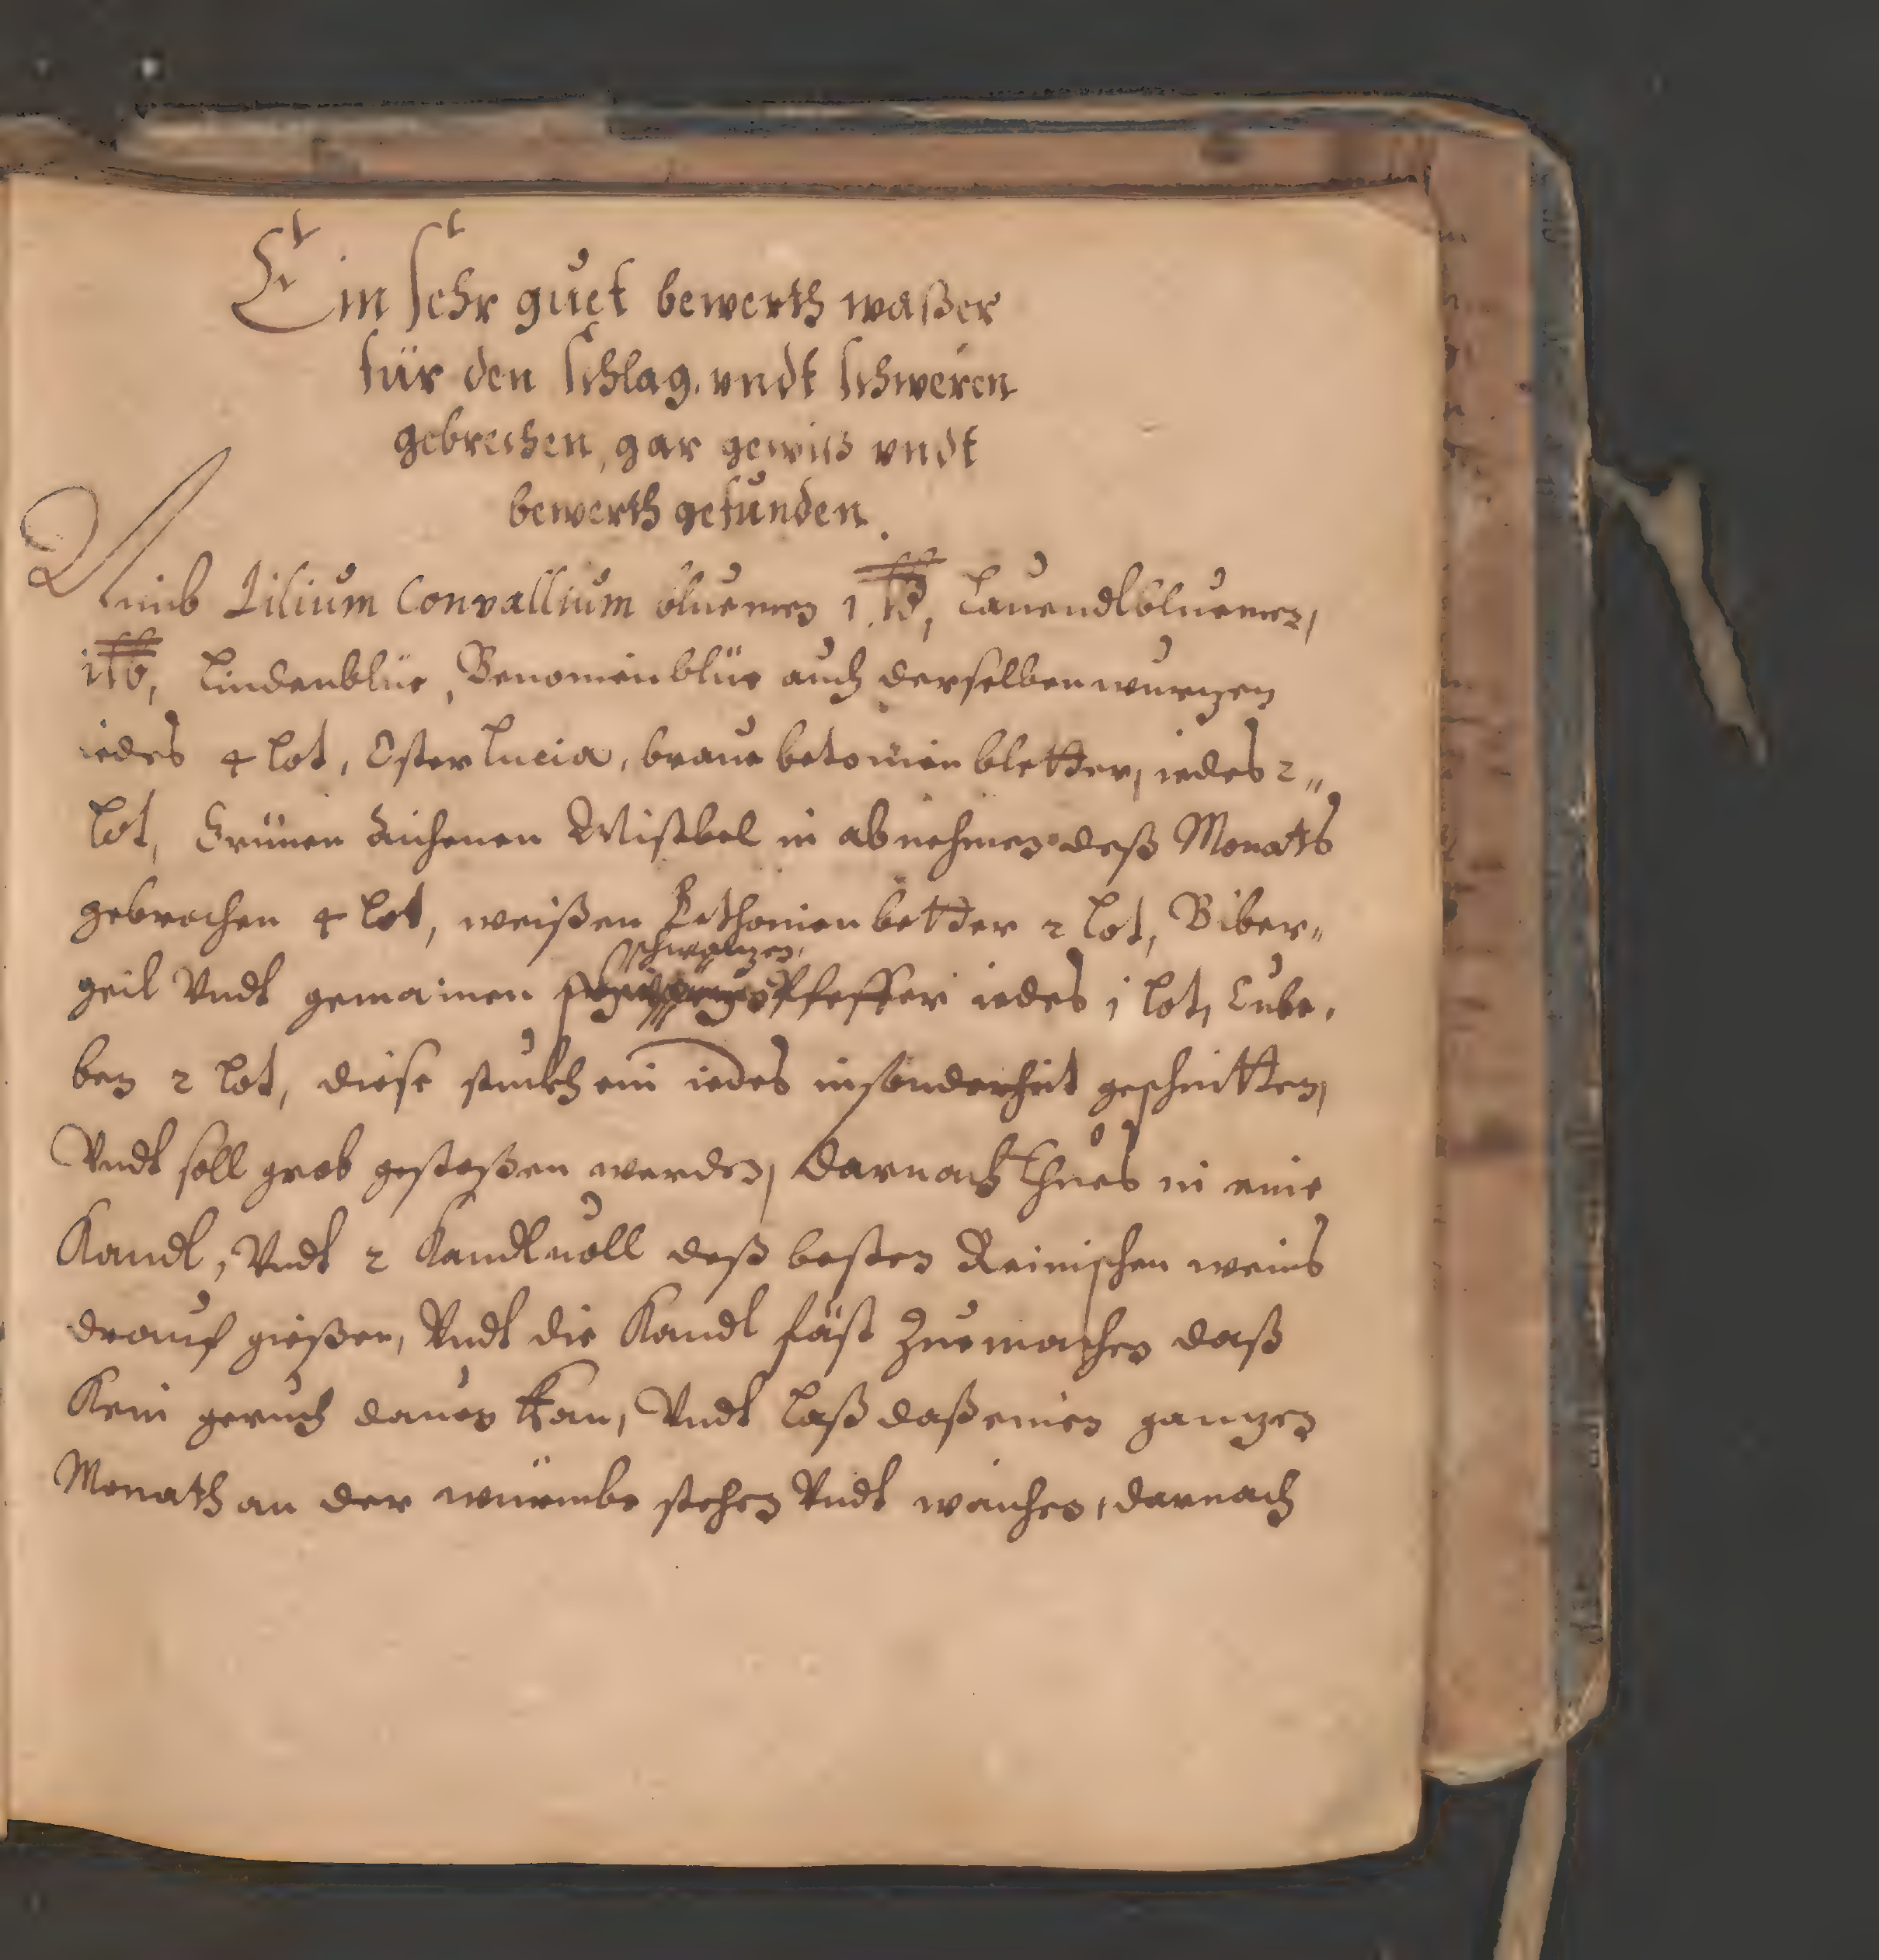 Ein sehr guet bewerth waßer
für den schlag, vndt schweren
gebrechen, gar gewiß vndt
bewerth gefunden.
Nimb Lilium Convallium bluemen 1 ℔, Lauendlbluemen,
1 ℔, Lindenblüe, Benonienblüe auch derselben wurzen
iedes 4 Lot, Osterlucia, braune betonien bletter, iedes 2„
Lot, Grünen Aichenen Mistbel in abnehmen deß Monats
gebrochen 4 Lot, weißen Bethonien better 2 Lot, Biber„
geil Vndt gemainen schwarzen Pfeffer iedes 1 Lot, Cube,
ben 2 Lot, diese stuckh ein iedes in sonderheit geschnitten,
Vndt soll grob gestoßen werden, Darnach Thues in eine
Kandl, Vndt 2 Kandl uoll deß besten Reinischen weins
drauf gießen, Vndt die Kandl fäst Zuemachen daß
Kein geruch dauon kan, Vndt Laß daß einen ganzen
Monath an der würmbe stehen Vndt waichen, darnach